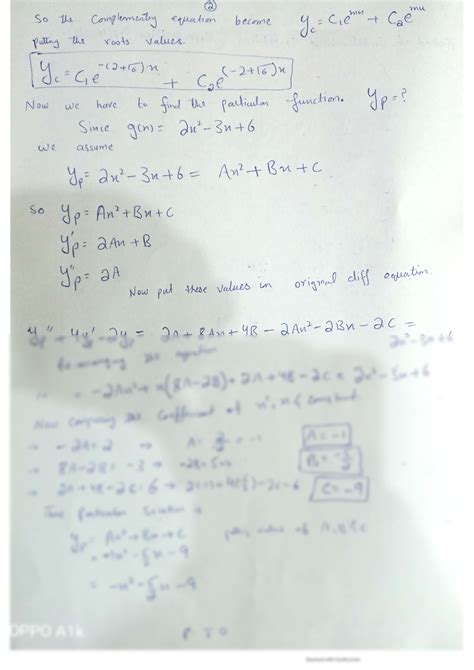 ②
So the Complementry equation become y_c = c₁e^{mx} + c₂e^{mx}
putting the roots values.
y_c = c₁e^{-(2+√6)·x} + c₂e^{(-2+√6)x}
Now we have to find the particular function. y_p = ?
Since g(x) = 2x²-3x+6
we assume
y_p = 2x²-3x+6 = Ax²+Bx+C
So y_p = Ax²+Bx+C
y'_p = 2Ax+B
y''_p = 2A
Now put these values in original diff equation.
y_p''+4y_p'-2y_p = 2A+8Ax+4B-2Ax²-2Bx-2C = 2x²-3x+6
Re-arranging the equation
= -2Ax²+(8A-2B)+2A+4B-2C = 2x²-3x+6
Now comparing the coefficient of x², x & constant
→ -2A=2 ⇒ A = = -1 A=-1
→ 8A-2B=-3 ⇒ -2B=5 B=-5/2
→ 2A+4B-2C=6 C=-9
Particular Solution
y_p = Ax²+Bx+C putting values of A,B&C
= -x²-5/2x-9
P T O
OPPO A1k